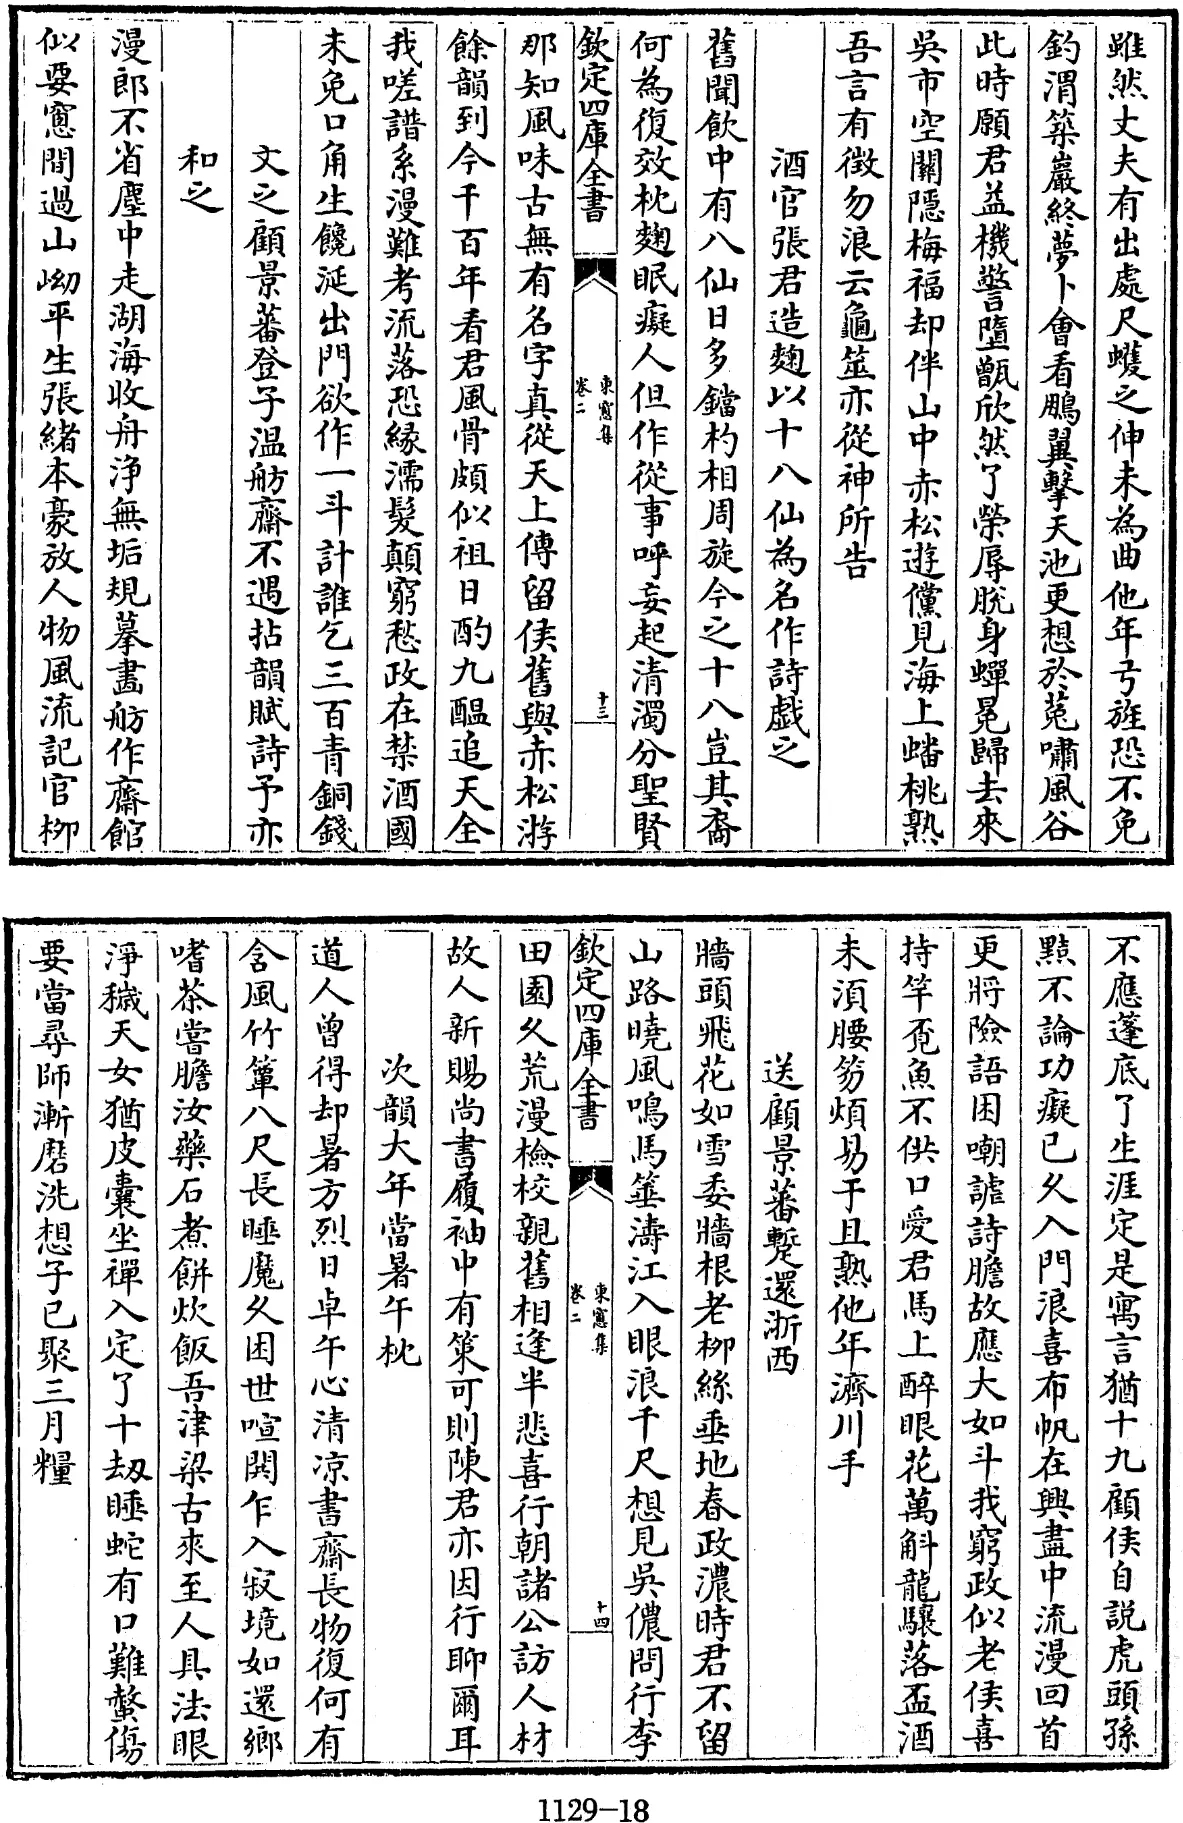 雖然丈夫有出處尺蠖之伸未為曲他年弓旌恐不免
釣渭築巖終夢卜會看鵬翼擊天池更想於菟嘯風谷
此時願君益機警墮甑欣然了榮辱脫身蟬冕歸去來
吳市空闗隱梅福却伴山中赤松遊儻見海上蟠桃熟
吾言有徵勿浪云龜筮亦從神所告
酒官張君造麴以十八仙為名作詩戲之
舊聞飲中有八仙日多鐺杓相周旋今之十八豈其裔
何為復效枕麴眠癡人但作從事呼妄起清濁分聖賢
欽定四庫全書
東窻集
卷二
十三
那知風味古無有名字真從天上傳留侯舊與赤松游
餘韻到今千百年看君風骨頗似祖日酌九醖追天全
我嗟譜系漫難考流落恐緣濡髮顛窮愁政在禁酒國
未免口角生饞涎出門欲作一斗計誰乞三百青銅錢
文之顧景蕃登子温舫齋不遇拈韻賦詩予亦
和之
漫郎不省塵中走湖海收舟浄無垢規摹畫舫作齋館
似要窻間過山岰平生張緒本豪放人物風流記官栁
不應蓬底了生涯定是寓言猶十九顧侯自説虎頭孫
黠不論功癡已乆入門浪喜布帆在興盡中流漫回首
更將險語困嘲謔詩膽故應大如斗我窮政似老侯喜
持竿覔魚不供口愛君馬上醉眼花萬斛龍驤落盃酒
未湏腰笏煩易于且熟他年濟川手
送顧景蕃蹔還浙西
牆頭飛花如雪委牆根老栁絲垂地春政濃時君不留
山路曉風鳴馬箠濤江入眼浪千尺想見吳儂問行李
欽定四庫全書
東窻集
卷二
十四
田園乆荒漫檢校親舊相逢半悲喜行朝諸公訪人材
故人新賜尚書履袖中有策可則陳君亦因行聊爾耳
次韻大年當暑午枕
道人曾得却暑方烈日卓午心清凉書齋長物復何有
含風竹簟八尺長睡魔乆困世喧鬨乍入寂境如還鄉
嗜茶嘗膽汝藥石煮餅炊飯吾津梁古來至人具法眼
淨穢天女猶皮囊坐禪入定了十刼睡蛇有口難螫傷
要當尋師漸磨洗想子已聚三月糧
1129-18